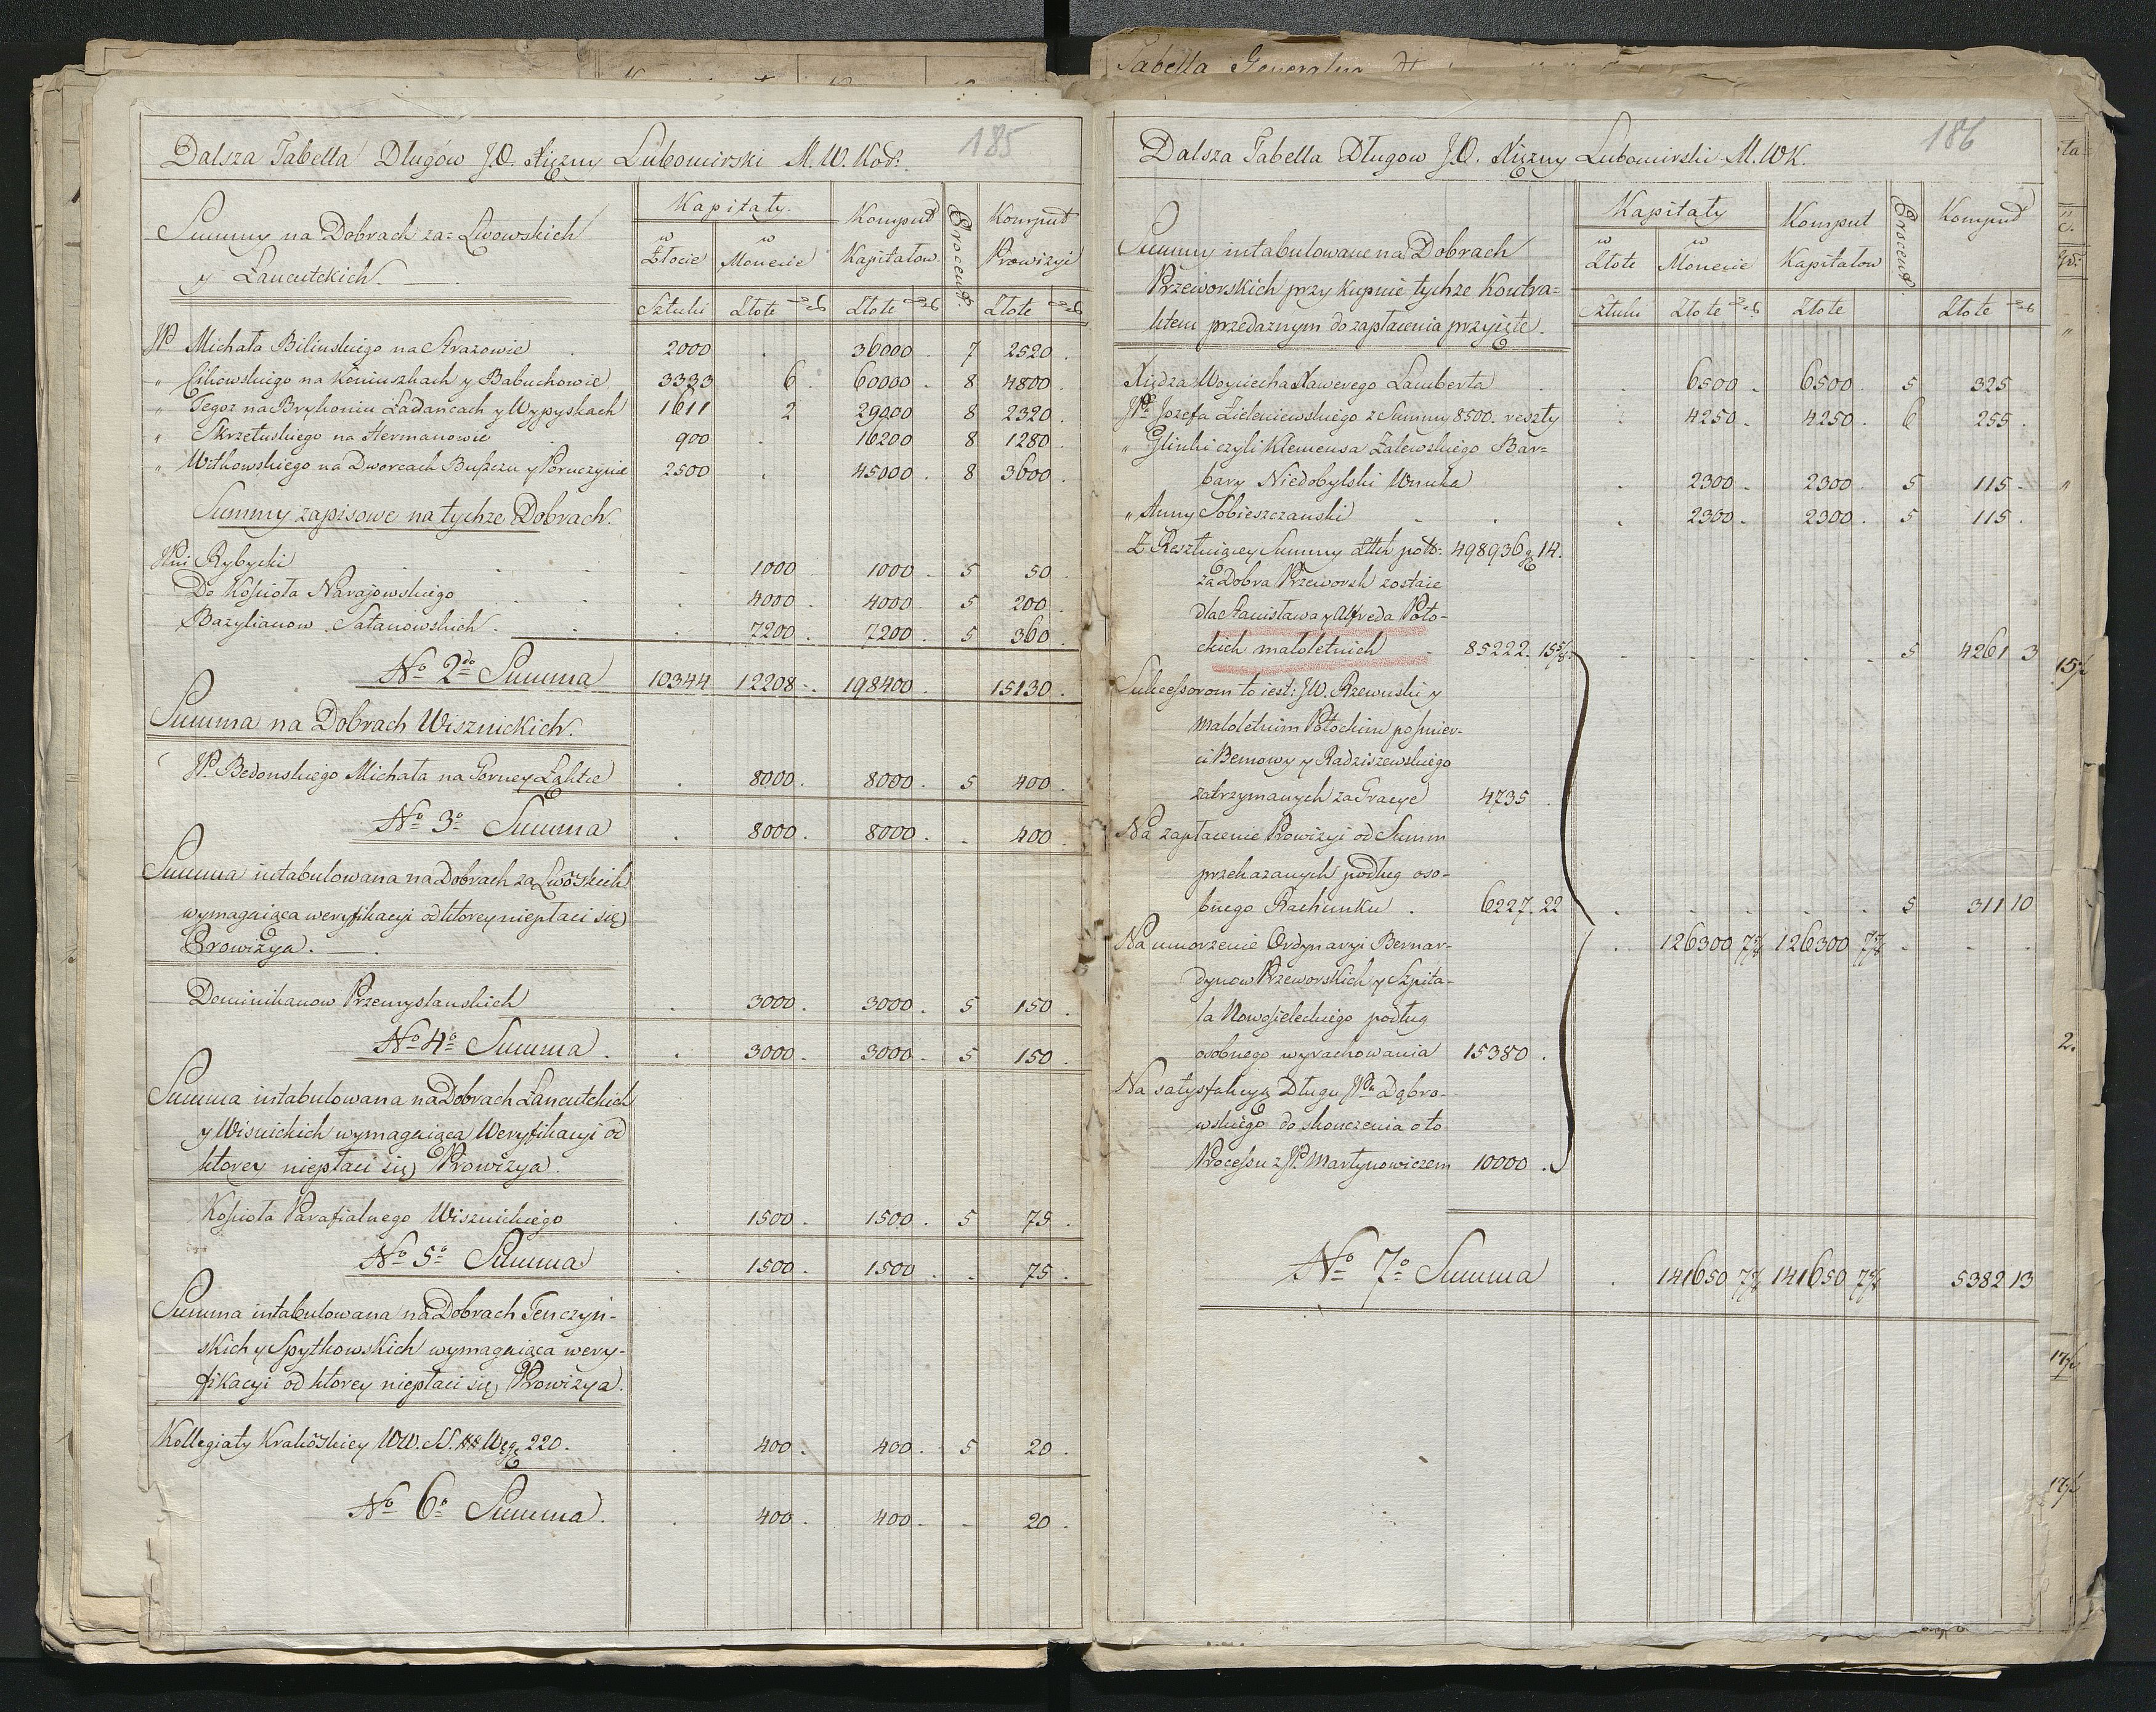 185
Dalsza Tabella Długow J.O. Xiężny Lubomirski M. W. Kor:
Summy na Dobrach za=Lwowskich
y Łancutckich.
Kapitały.
w Złocie
w Monecie
Komput Kapitałow
Procent.
Komput Prowizyi
Sztuki Złote Złote Złote
JP. Michała Bilinskiego na 2000 . 36000 . 7 2520 .
" Cikowskiego na Koniuszkach y Babuchowie 3333 6 . 60000 . 8 4800 .
" Tegoz na Brykoniu Ładancach y Wypyskach 1611 2 29000 8 2320 .
" Skrzetuskiego na Hermanowie 900 . 16200 8 1280 .
" Witkowskiego na Dworcach Buszczu y Poruczynie 2500 . 45000 . 8 3600 .
Summy zapisowe na tychze Dobrach.
JPni Rybycki 1000 1000 . 5 50 .
Do Kościoła Narajowskiego 4000 . 4000 . 5 200 .
Bazylianow Satanowskich . 7200 . 7200 . 5 360 .
No 2do Summa 10344 12208 -. 198400 . 15130 .
Summa na Dobrach Wisznickich.
JP. Bedonskiego Michała na Gorney Łąkcie . 8000 . 8000 . 5 400 .
No 3o Summa . 8000 . 8000 . - 400 .
Summa intabulowana na Dobrach za Lwoskich
wymagaiąca weryfikacyi od ktorey niepłaci się
Prowizya. —.
Dominikanow Przemyslanskich . 3000 . 3000 . 5 150 .
No 4o Summa . . 3000 . 3000 . 5 150 .
Summa intabulowana na Dobrach Łancutckich
y Wisnickich wymagaiąca Weryfikacyi od
ktorey niepłaci się Prowizya.
Kościoła Parafialnego Wisznickiego . 1500 . 1500 . 5 75 .
No 5o Summa . 1500 . 1500 . - 75 .
Summa intabulowana na Dobrach Tenczyn-
skich y Spytkowskich wymagaiąca wery-
fikacyi od ktorey niepłaci się Prowizya.
Kollegiaty Krakoskiey WW. SS. Węg 220. . 400 . 400 . 5 20 .
No 6o Summa . . 400 . 400 - - 20 .
Tabella Generalna
186
Dalsza Tabella Długow J.O. Xiężny Lubomirski M. WK.
Summy intabulowane na Dobrach
Przeworskich przy kupnie tychze Kontra=
ktem przedaznym do zapłacenia przyięte.
Kapitały
w Złote
w Monecie
Komput Kapitałow
Procent.
Komput
Sztuki Złote Złote Złote
Xiędza Woyciecha Nawerego Lamberta . 6500 . 6500 . 5 325
JP. Jozefa Zieleniewskiego z Summy 8500. reszty . 4250 . 4250 . 6 255 .
" Glinki czyli Klemensa Zalewskiego Bar=
bary Niedobylski Wnuka . 2300 . 2300 . 5 115 .
" Anny Sobieszczanski . 2300 . 2300 . 5 115 .
Z Resztuiącey Summy 498936 g 14.
za Dobra Przeworsk zostaie
dla Stanisława y Alfreda Poto-
ckich małoletnich . 85222. 15 5/8 5 4261 3
Sukcessorom to iest: JW. Rzewuski y
małoletnim Potockim po śmier-
ci Bemowy y Radziszewskiego
zatrzymanych za Gracye 4735 .
Na zapłacenie Prowizyi od Summ
przekazanych podług oso-
bnego Rachunku . 6227. 22 5 311 10
126300 126300
Na umorzenie Ordynaryi Bernar-
dynow Przeworskich y Szpita-
la Nowosieleckiego podług
osobnego wyrachowania 15380 .
Na satysfakcyą Długu JP. Dąbro-
wskiego do skonczenia o to
Processu z JP. Martynowiczem 10000 .
No 7o Summa . 141650 141650 5382 13